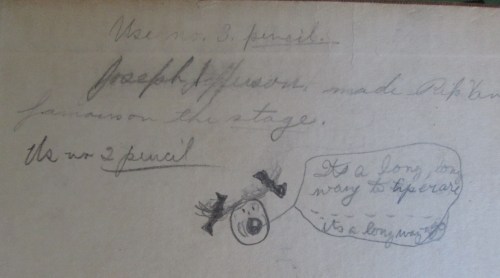 Use no. 3. pencil.
Joseph Jefferson, made Rip Van
famous on the stage.
Us no 2 pencil
Its a long, long
wary to tiperare
its a long way